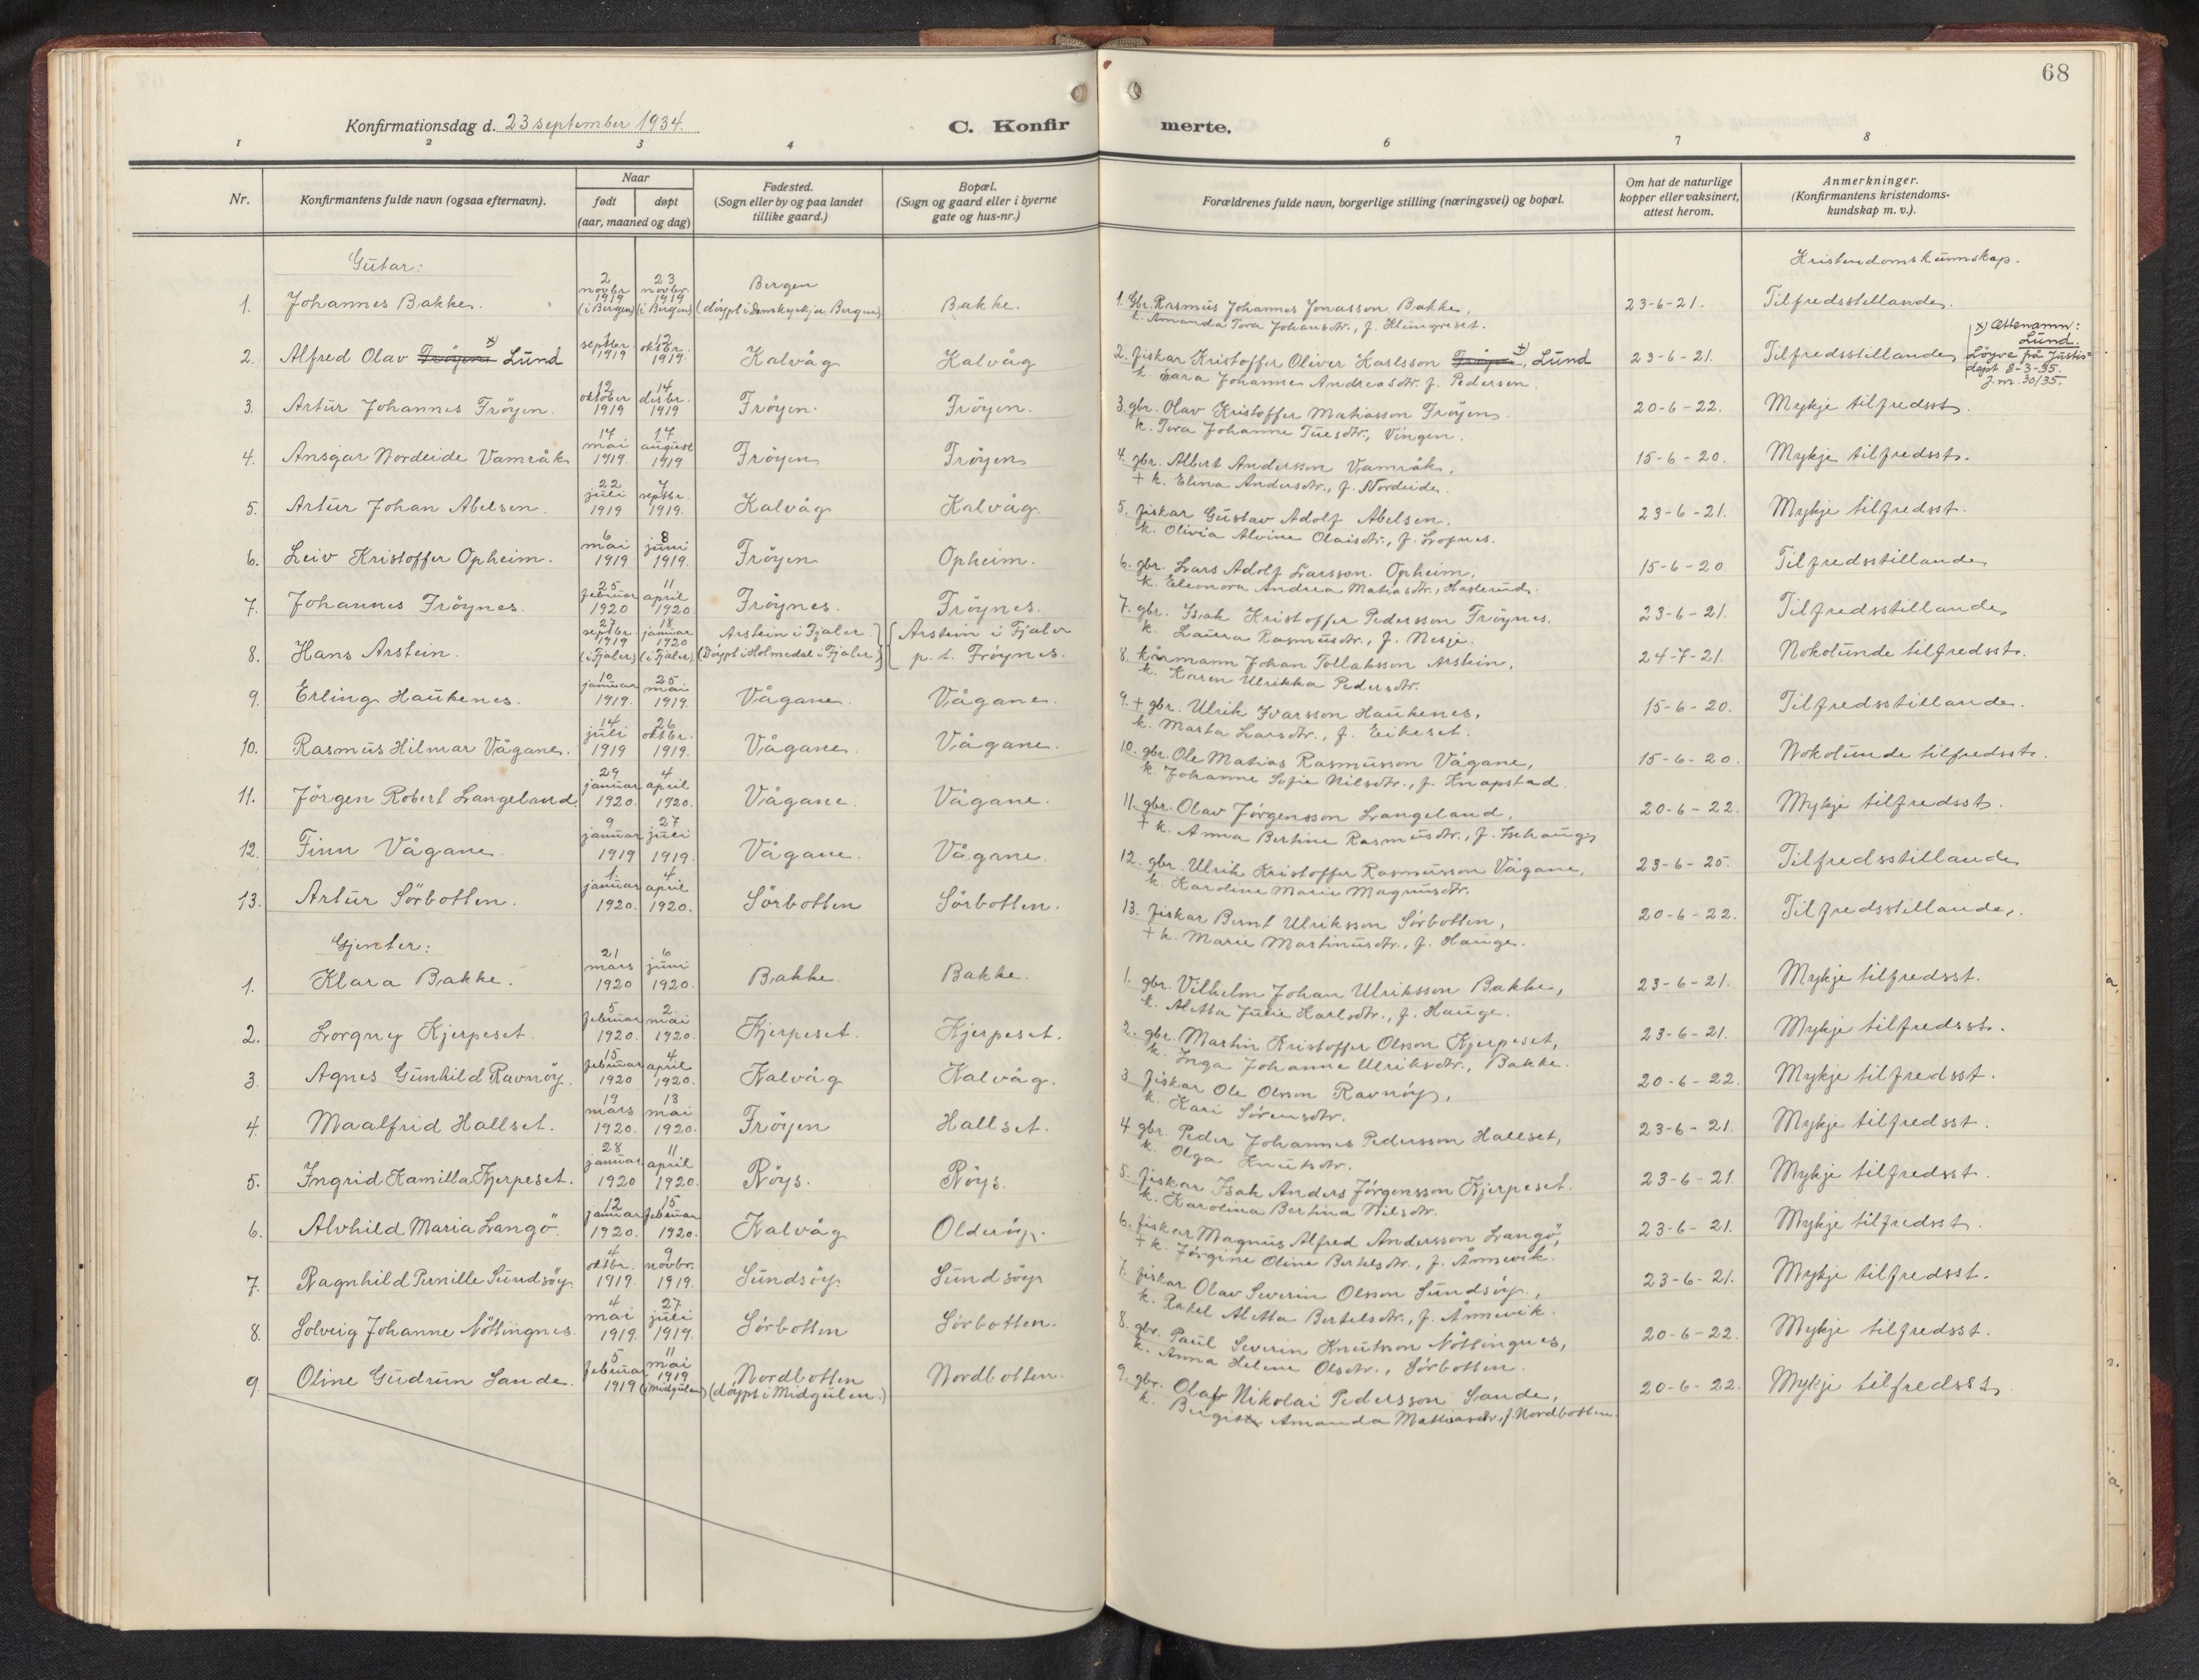 68
Konfirmationsdag d. 23 september 1934.
C. Konfir merte.
1 2 3 4 6 7 8
Nr.
Konfirmantens fulde navn (ogsaa efternavn).
Naar
født
døpt
(aar, maaned og dag)
Fødested.
(Sogn eller by og paa landet
tillike gaard.)
Bopæl.
(Sogn og gaard eller i byerne
gate og hus-nr.)
Forældrenes fulde navn, borgerlige stilling (næringsvei) og bopæl.
Om hat de naturlige
kopper eller vaksinert,
attest herom.
Anmerkninger.
(Konfirmantens kristendoms-
kundskap m. v.).
Gutar:
Kristendomskunnskap.
1. Johannes Bakke. 2 novbr 1919 (i Bergen) 23 novbr. 1919 (i Bergen) Bergen (döypt i Domskyrkja, Bergen) Bakke. 1. Gbr. Rasmus Johannes Jonasson Bakke, 23-6-21. Tilfredsstillande.
k. Amanda Tora Johansdtr., f. Klungreset.
2. Alfred Olav Fröyen x) Lund septbr. 1919 12 oktbr. 1919. Kalvåg Kalvåg 2. fiskar Kristoffer Oliver Karlsson Fröyen x), Lund 23-6-21. Tilfredsstillande
k. Sara Johanne Andreasdtr. f. Pedersen.
x) Ættenamn:
Lund.
Löyve på Justis=
dept 8-3-35.
J.nr. 30/35.
3. Artur Johannes Fröyen. 12 oktober 1919 14 desbr. 1919 Fröyen. Fröyen. 3. gbr. Olav Kristoffer Matiasson Fröyen. 20-6-22. Mykje tilfredsst.
k. Tora Johanne Tuesdtr., Vingen.
4. Ansgar Nordeide Vamråk 14 mai 1919. 17 august 1919 Fröyen Fröyen 4. gbr. Albert Andersson Vamråk, 15-6-20. Mykje tilfredsst.
+ k. Elina Andersdtr., f. Nordeide.
5. Artur Johan Abelsen. 22 juli 1919 7 septbr. 1919. Kalvåg Kalvåg. 5. fiskar Gustav Adolf Abelsen, 23-6-21. Mykje tilfredsst.
k. Olivia Alvine Olaisdtr., f.
6. Leiv Kristoffer Opheim. 6 mai 1919 8 juni 1919. Fröyen Opheim. 6. gbr. Lars Adolf Larsson Opheim, 15-6-20 Tilfredsstillande
k. Eleonora Andrea Matiasdtr.,
7. Johannes Fröynes. 25 februar 1920 11 april 1920 Fröynes. Fröynes. 7. gbr. Isak Kristoffer Pedersson Fröynes. 23-6-21. Tilfredsstillande
k. Laura Rasmusdtr., f. Nesje.
8. Hans Arstein. 27 septbr. 1919 (i Fjaler) 18 januar 1920 (i Fjaler) Arstein i Fjaler (Döypt i Holmedal i Fjaler) Arstein i Fjaler p. t. Fröynes. 8. kårmann Johan Tollaksson Arstein, 24-7-21. Nokolunde tilfredsst.
k. Karen Ulrikka Pedersdtr.
9. Erling Haukenes. 10 januar 1919. 25 mai 1919. Vågane. Vågane. 9. + gbr. Ulrik Ivarsson Haukenes, 15-6-20. Tilfredsstillande.
k. Marta Larsdtr., f. Eikeset.
10. Rasmus Hilmar Vågane. 14 juli 1919 26 oktbr. 1919. Vågane. Vågane. 10. gbr. Ole Matias Rasmusson Vågane, 15-6-20. Nokolunde tilfredsst.
k. Johanne Sofie Nilsdtr., f. Knapstad.
11. Jörgen Robert Langeland. 29 januar 1920. 4 april 1920. Vågane. Vågane. 11. gbr. Olav Jörgensson Langeland, 20-6-22. Mykje tilfredsst.
+ k. Anna Bertine Rasmusdtr., f.
12. Finn Vågane 9 januar 1919 27 juli 1919. Vågane. Vågane. 12. gbr. Ulrik Kristoffer Rasmusson Vågane, 23-6-25. Tilfredsstillande
k. Karoline Marie Magnusdtr.
13. Artur Sörbotten. 1. januar 1920. 4 april 1920. Sörbotten Sörbotten. 13. fiskar Bernt Ulriksson Sörbotten, 20-6-22. Tilfredsstillande.
+ k. Marie Martinusdtr., f. Hauge.
Gjenter:
1. Klara Bakke. 21 mars 1920 6 juni 1920. Bakke. Bakke. 1. gbr. Vilhelm Johan Ulriksson Bakke, 23-6-21. Mykje tilfredsst.
k. Aletta Julie Karlsdtr., f. Hauge.
2. Lorgny Kjerpeset. 5 februar 1920. 2 mai 1920. Kjerpeset. Kjerpeset. 2. gbr. Martin Kristoffer Olsson Kjerpeset, 23-6-21. Mykje tilfredsst.
k. Inga Johanne Ulriksdtr., Bakke.
3. Agnes Gunhild Ravnöy. 15 februar 1920 4 april 1920. Kalvåg Kalvåg. 3 fiskar Ole Olsson Ravnöy, 20-6-22. Mykje tilfredsst.
k. Kari Sörensdtr.
4. Maalfrid Hallset. 19 mars 1920. 13 mai 1920. Fröyen Hallset. 4 gbr. Peder Johannes Pedersson Hallset, 23-6-21. Mykje tilfredsst.
k. Olga Knutsdtr.
5. Ingrid Kamilla Kjerpeset. 28 januar 1920 11 april 1920. Röys. Röys. 5. fiskar Isak Anders Jörgensson Kjerpeset. 23-6-21. Mykje tilfredsst.
k. Karolina Bertina Nilsdtr.
6. Alvhild Maria Langö. 12 januar 1920. 15 februar 1920. Kalvåg Olderöy. 6. fiskar Magnus Alfred Andersson Langö, 23-6-21. Mykje tilfredsst.
+ k. Jörgine Oline Bertelsdtr., f. Ånnevik.
7. Ragnhild Pernille Sundsöy. 4 oktbr. 1919. 9 novbr. 1919. Sundsöy Sundsöy 7. fiskar Olav Severin Olsson Sundsöy, 23-6-21. Mykje tilfredsst.
k. Rakel Aletta Bertelsdtr., f. Ånnevik.
8. Solveig Johanne Nöttingnes. 4 mai 1919. 27 juli 1919. Sörbotten Sörbotten. 8. gbr. Paul Severin Knutsson Nöttingnes, 20-6-22. Mykje tilfredsst.
k. Anna Helene Olsdtr., Sörbotten.
9. Oline Gudrun Sande. 5 februar 1919 11 mai 1919 (i Midgulen) Nordbotten (döypt i Midgulen.) Nordbotten. 9. gbr. Olaf Nikolai Pedersson Sande, 20-6-22. Mykje tilfredsst.
k. Amanda Mathiasdtr., f. Nordbotten.